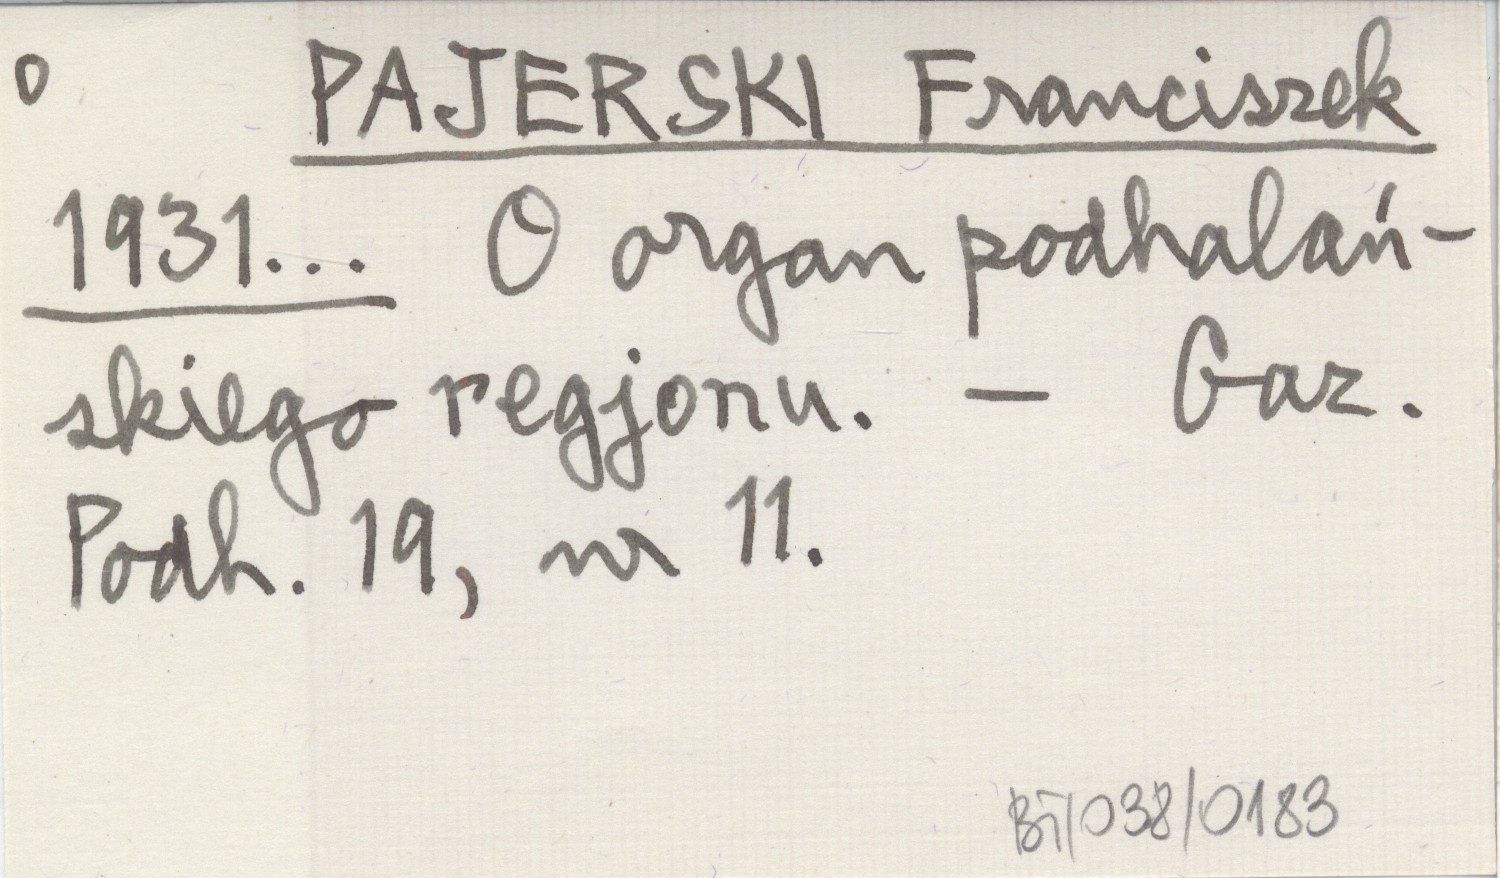 o PAJERSKI Franciszek
1931... O organ podhalań-
skiego regjonu. – Gaz.
Podh. 19, nr 11.
BT/038/0183